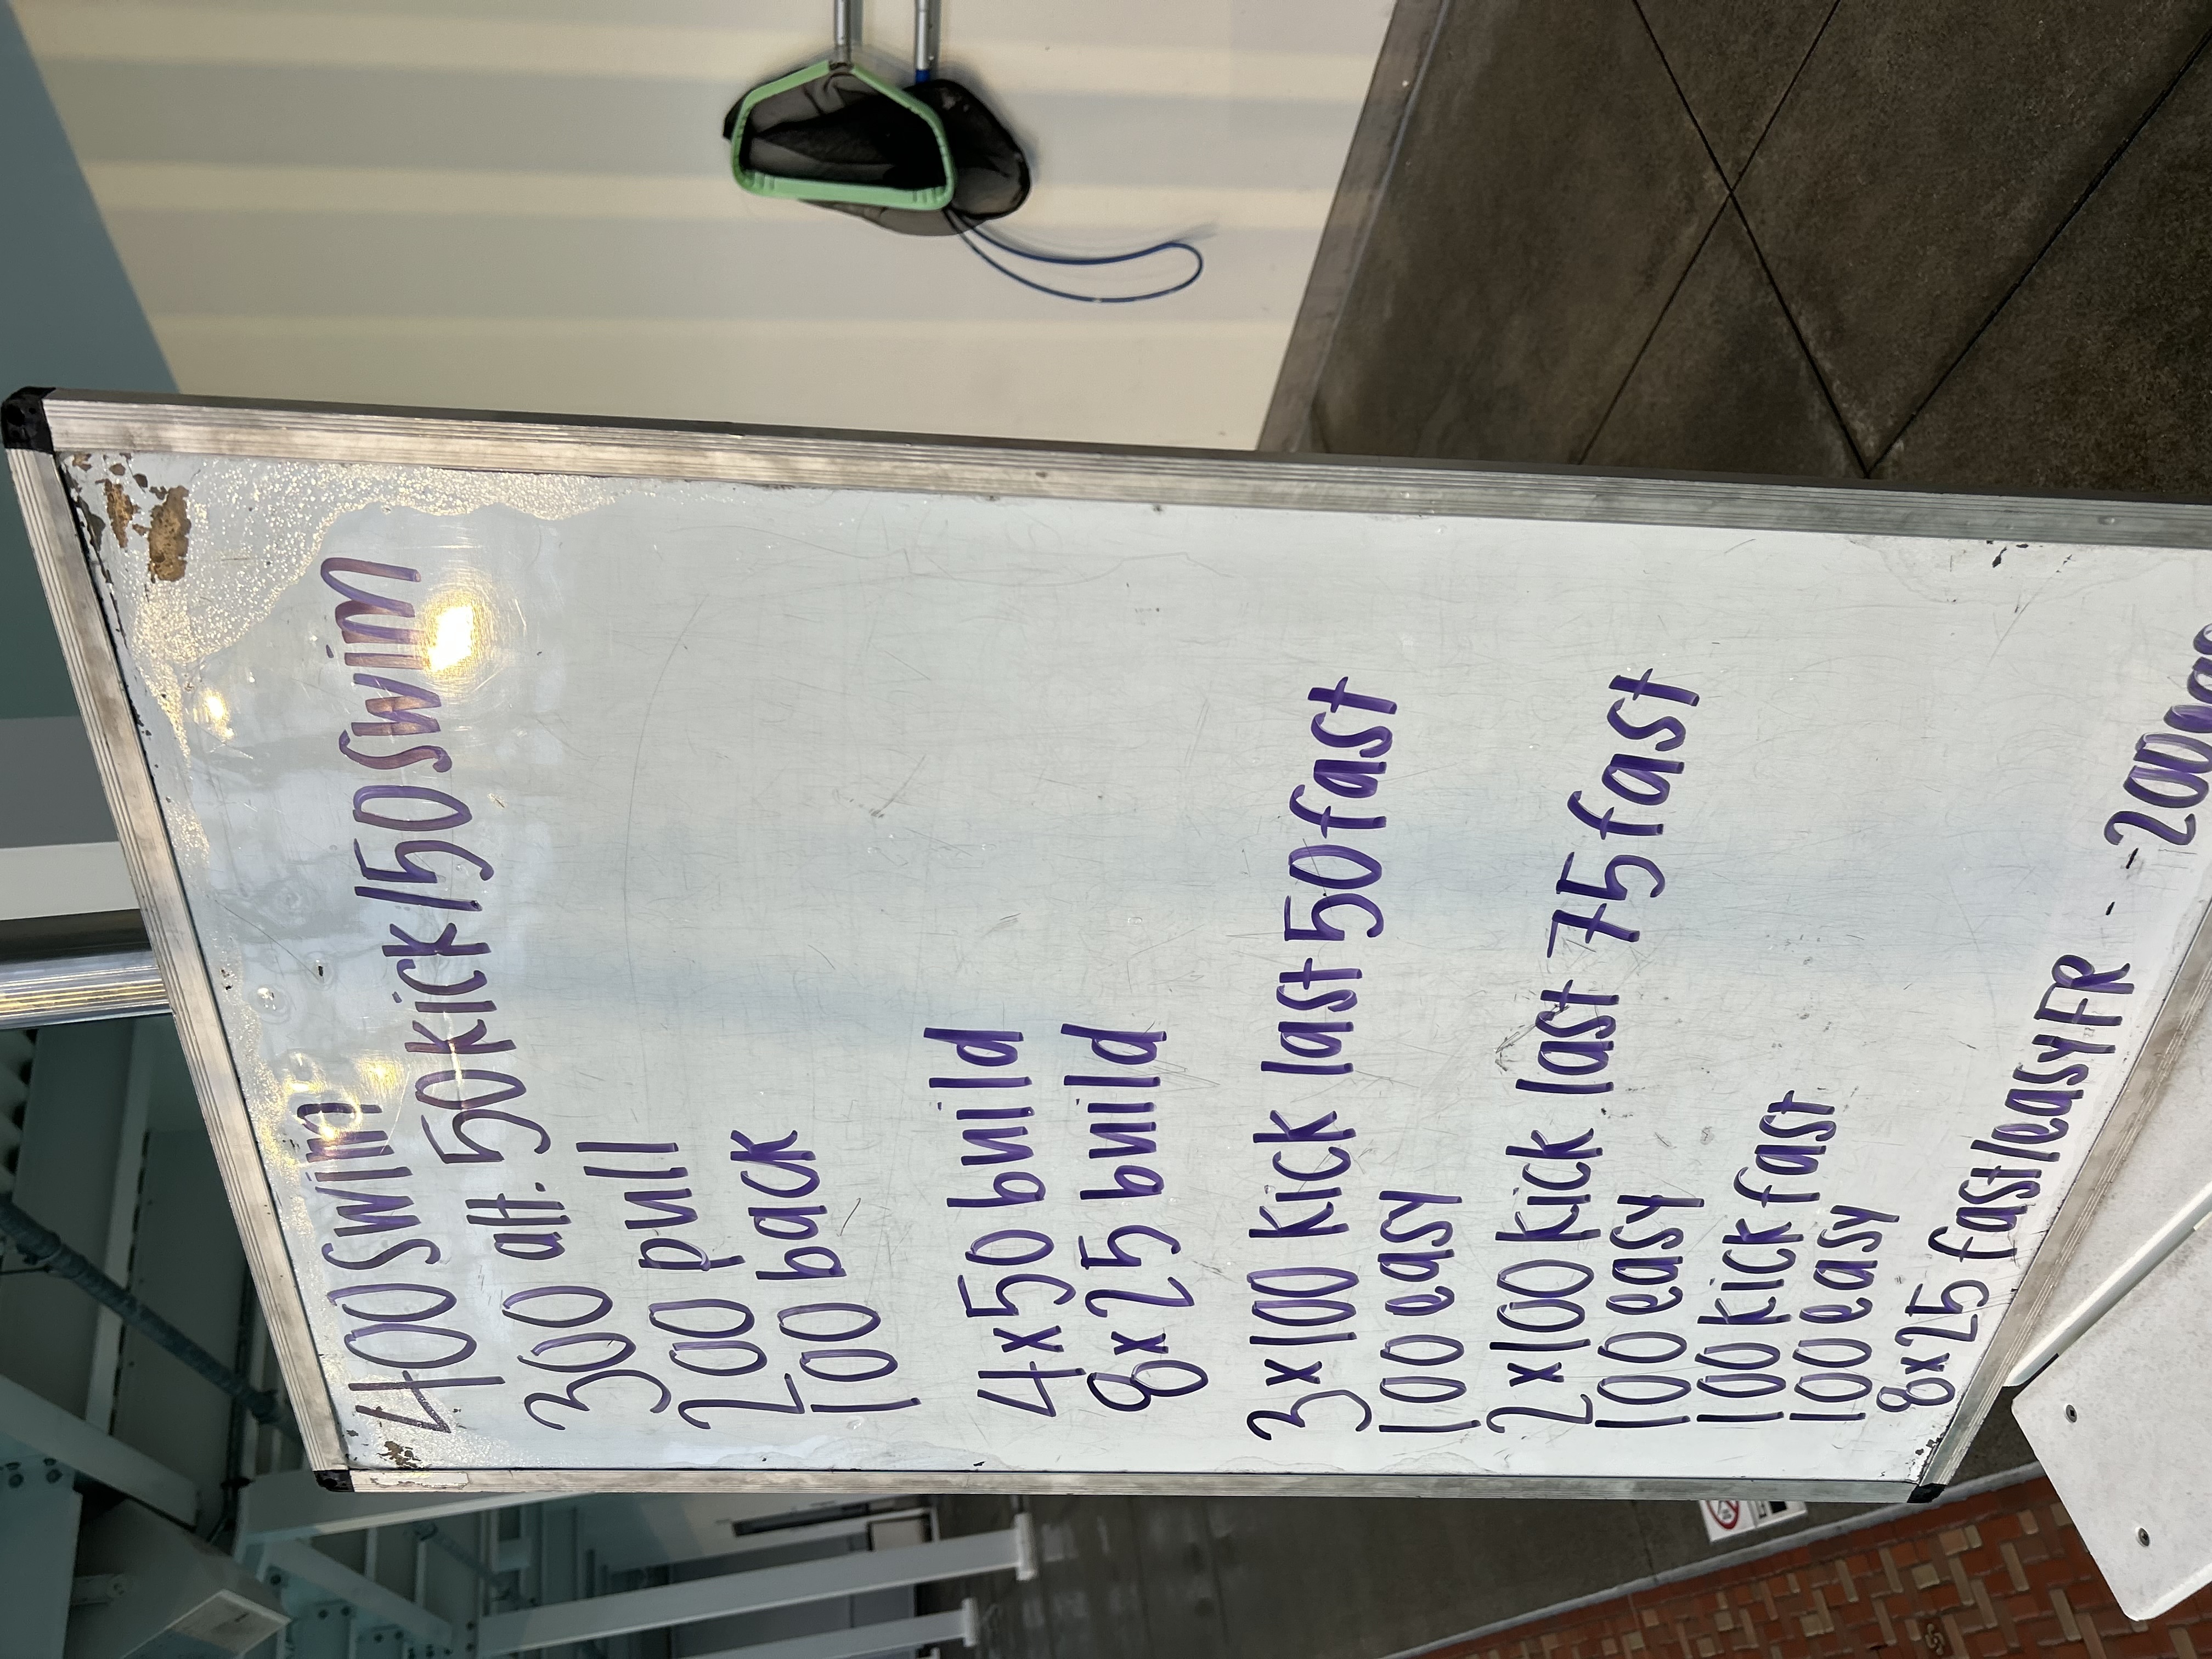 400 swim
300 alt. 50 kick/50 swim
200 pull
100 back
4x50 build
8x25 build
3x100 kick last 50 fast
100 easy
2x100 kick last 75 fast
100 easy
100 kick fast
100 easy
8x25 fast/easy FR - - 200